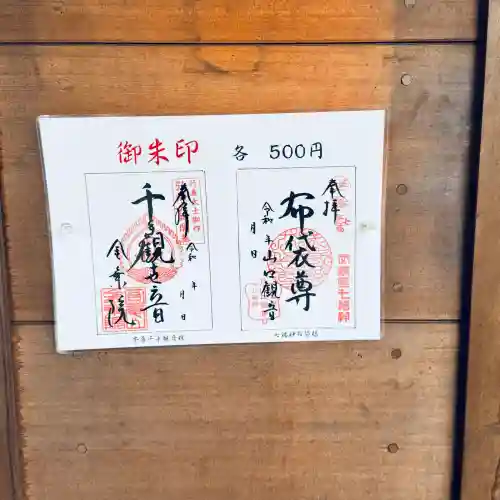 御朱印 各 500円
奉拝
千手観世音
令和 年 月 日
金乗院
奉拝
布袋尊
令和 年 月 日
山口観音
本尊千手観音様
七福神布袋様